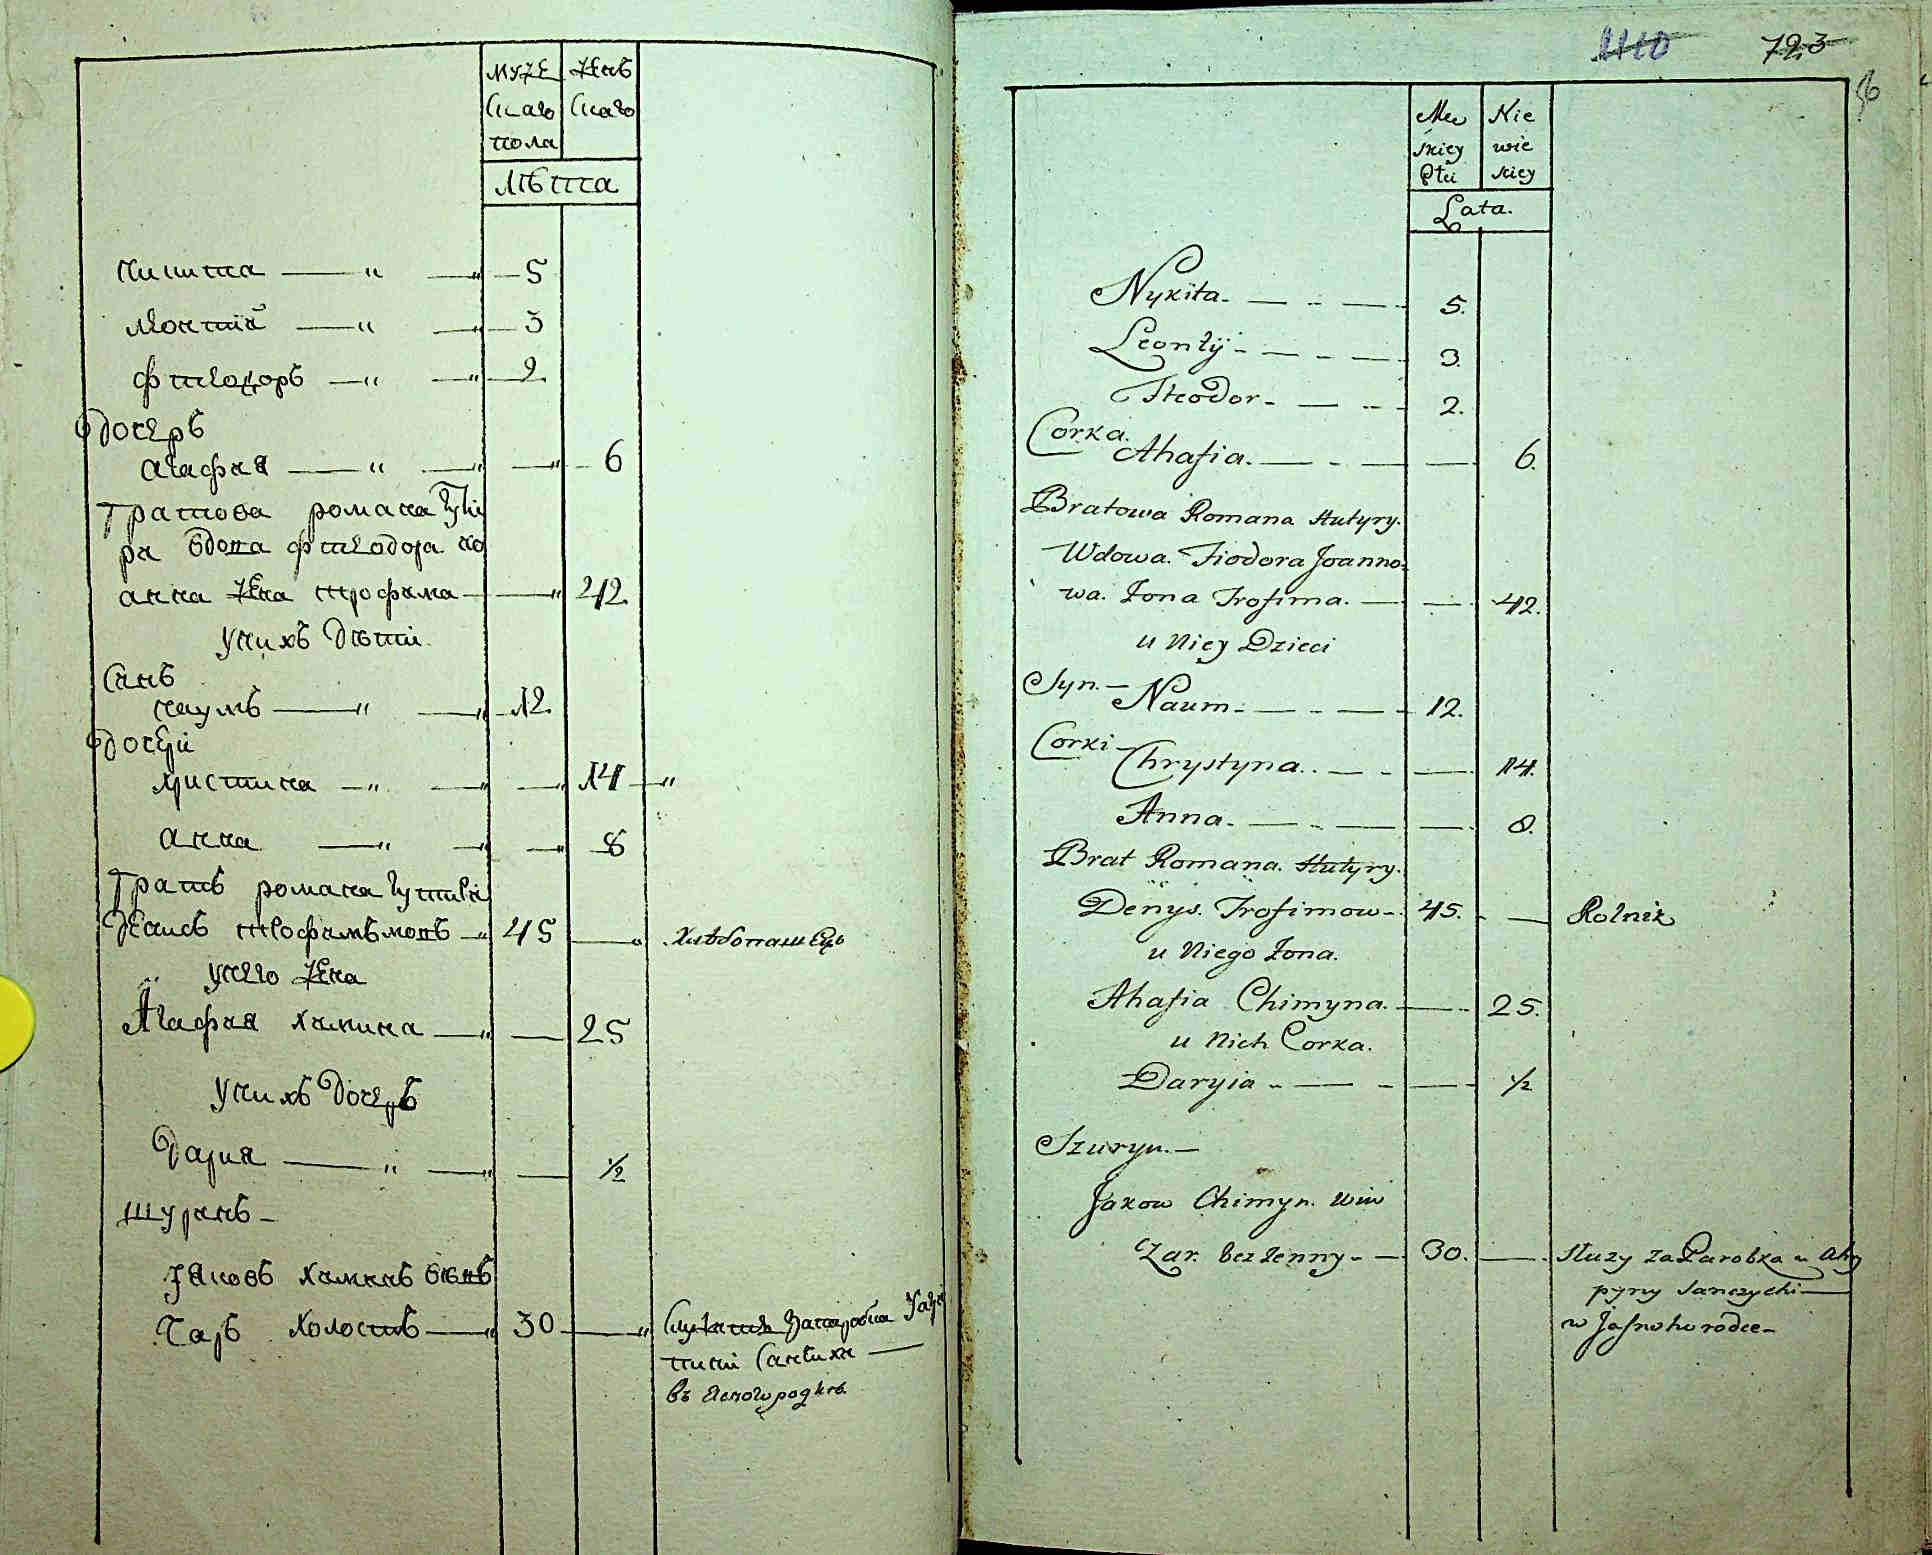 муже женъ
скаго скаго
пола
лѣта
никита — „ — „ — 5
леонтій — „ — „ — 3
фтеодоръ — „ — „ — 2
дочеръ
агафия — „ — „ — „ — 6
братова романа
ра вдова фтеодора ио
анна жена трофима — — „ 42
унихъ дѣти
Синъ
наумъ — „ — „ — 12
дочери
христина — „ — „ — „ 14 — „
анна — „ — „ — „ 8
братъ романа
Денисъ — „ 45 — „ хлѣбопашецъ
унего жена
Агафия химина — „ — 25
унихъ дочеръ
Дария — „ — „ — ½
шуринъ —
Яковъ химинъ винъ
чаръ холостъ — „ 30 — „ служитъ запаробка
пини Санчихи —
въ Ясногородкѣ
1110 723
56
Mę Nie
skiey wie
Płci skiey
Lata.
Nykita. — - — - 5.
Leontÿ - — - — - 3.
Teodor - — - - 2.
Corka.
Ahafia. — - — — 6.
Bratowa Romana Hutyry.
Wdowa. Fiodora Joanno-
wa. Żona Trofima. — — - 42.
u Niey Dzieci
Syn. — Naum - — - — - 12.
Corki —
Chrystyna.. — - — 14.
Anna. — - — — 8.
Brat Romana. Hutyry.
Denys. Trofimow - 45. - — Rolnik
u Niego Żona.
Ahafia Chimyna. — - 25.
u Nich Corka.
Daryia - — - — - ½
Szuryn. —
Jakow Chimyn. Win
Czar. bezżenny - — 30. — Służy za Parobka u Aha
pyny Sanczychi —
w Jasnohorodce —